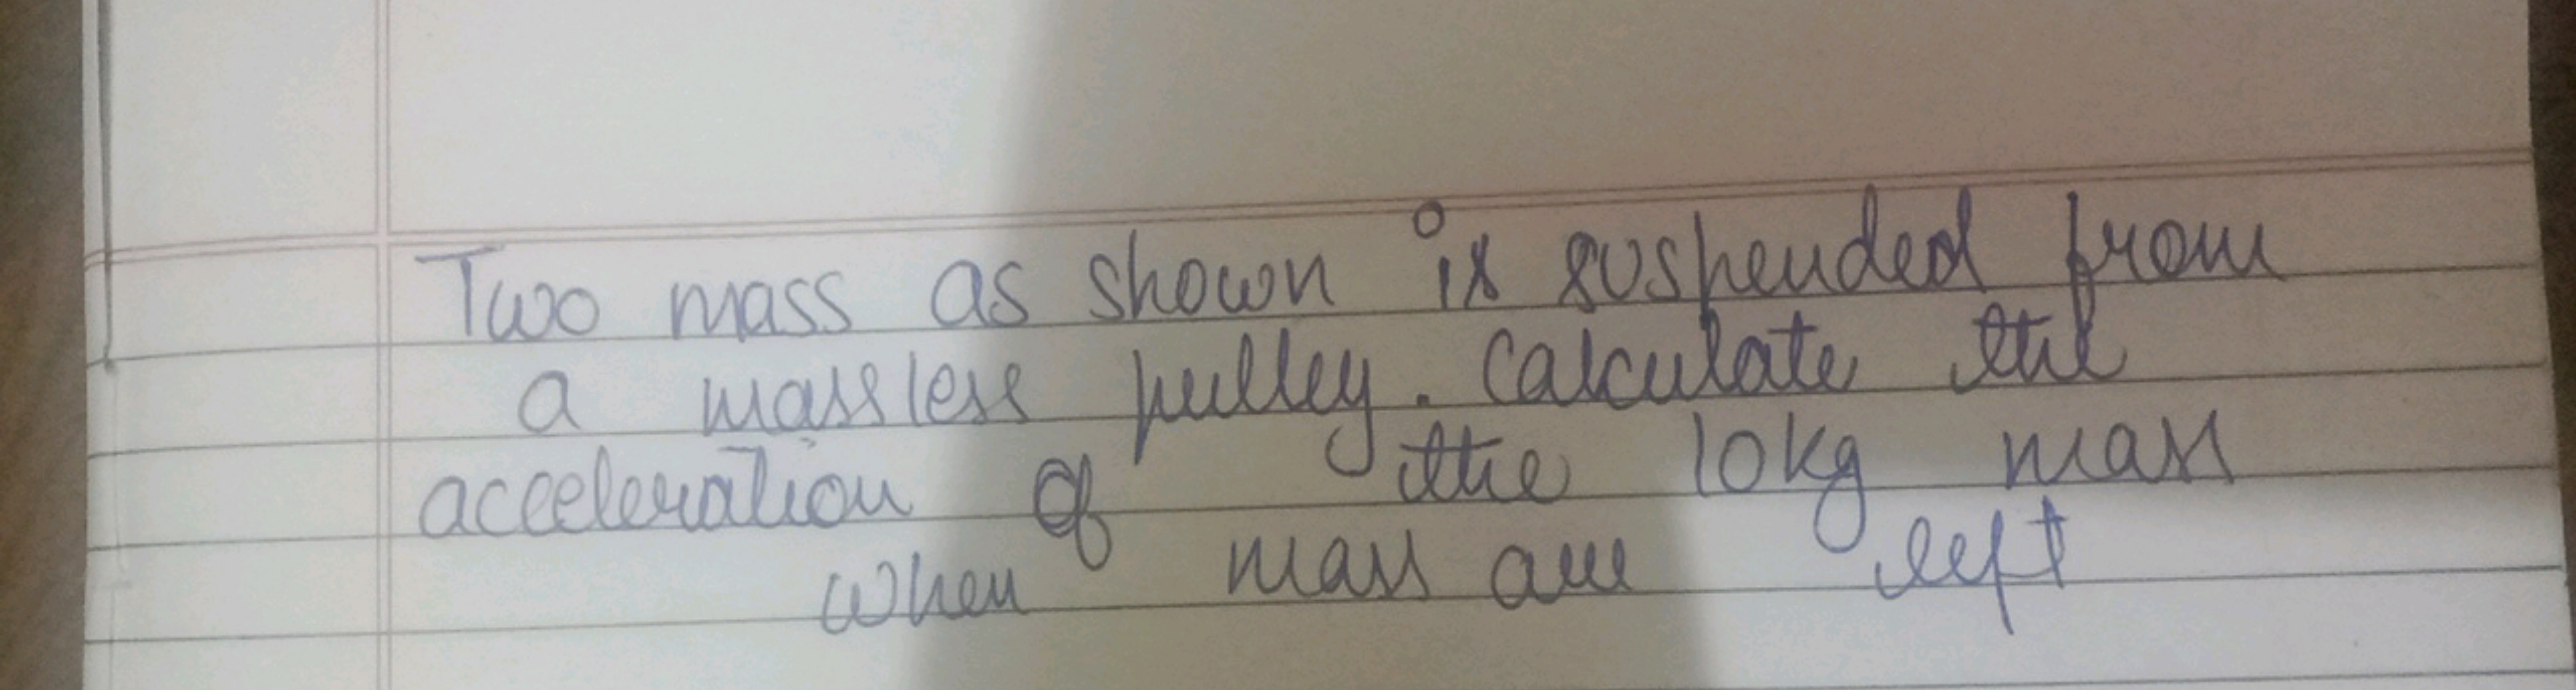 Two mass as shown is suspended from
a massless pulley. Calculate the
acceleration of the 10kg mass
when mass are left